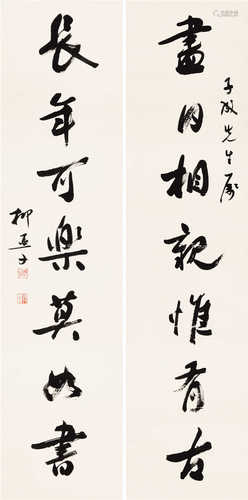 盡日相親惟有石
子先生屬
長年可樂莫如書
柳亞子